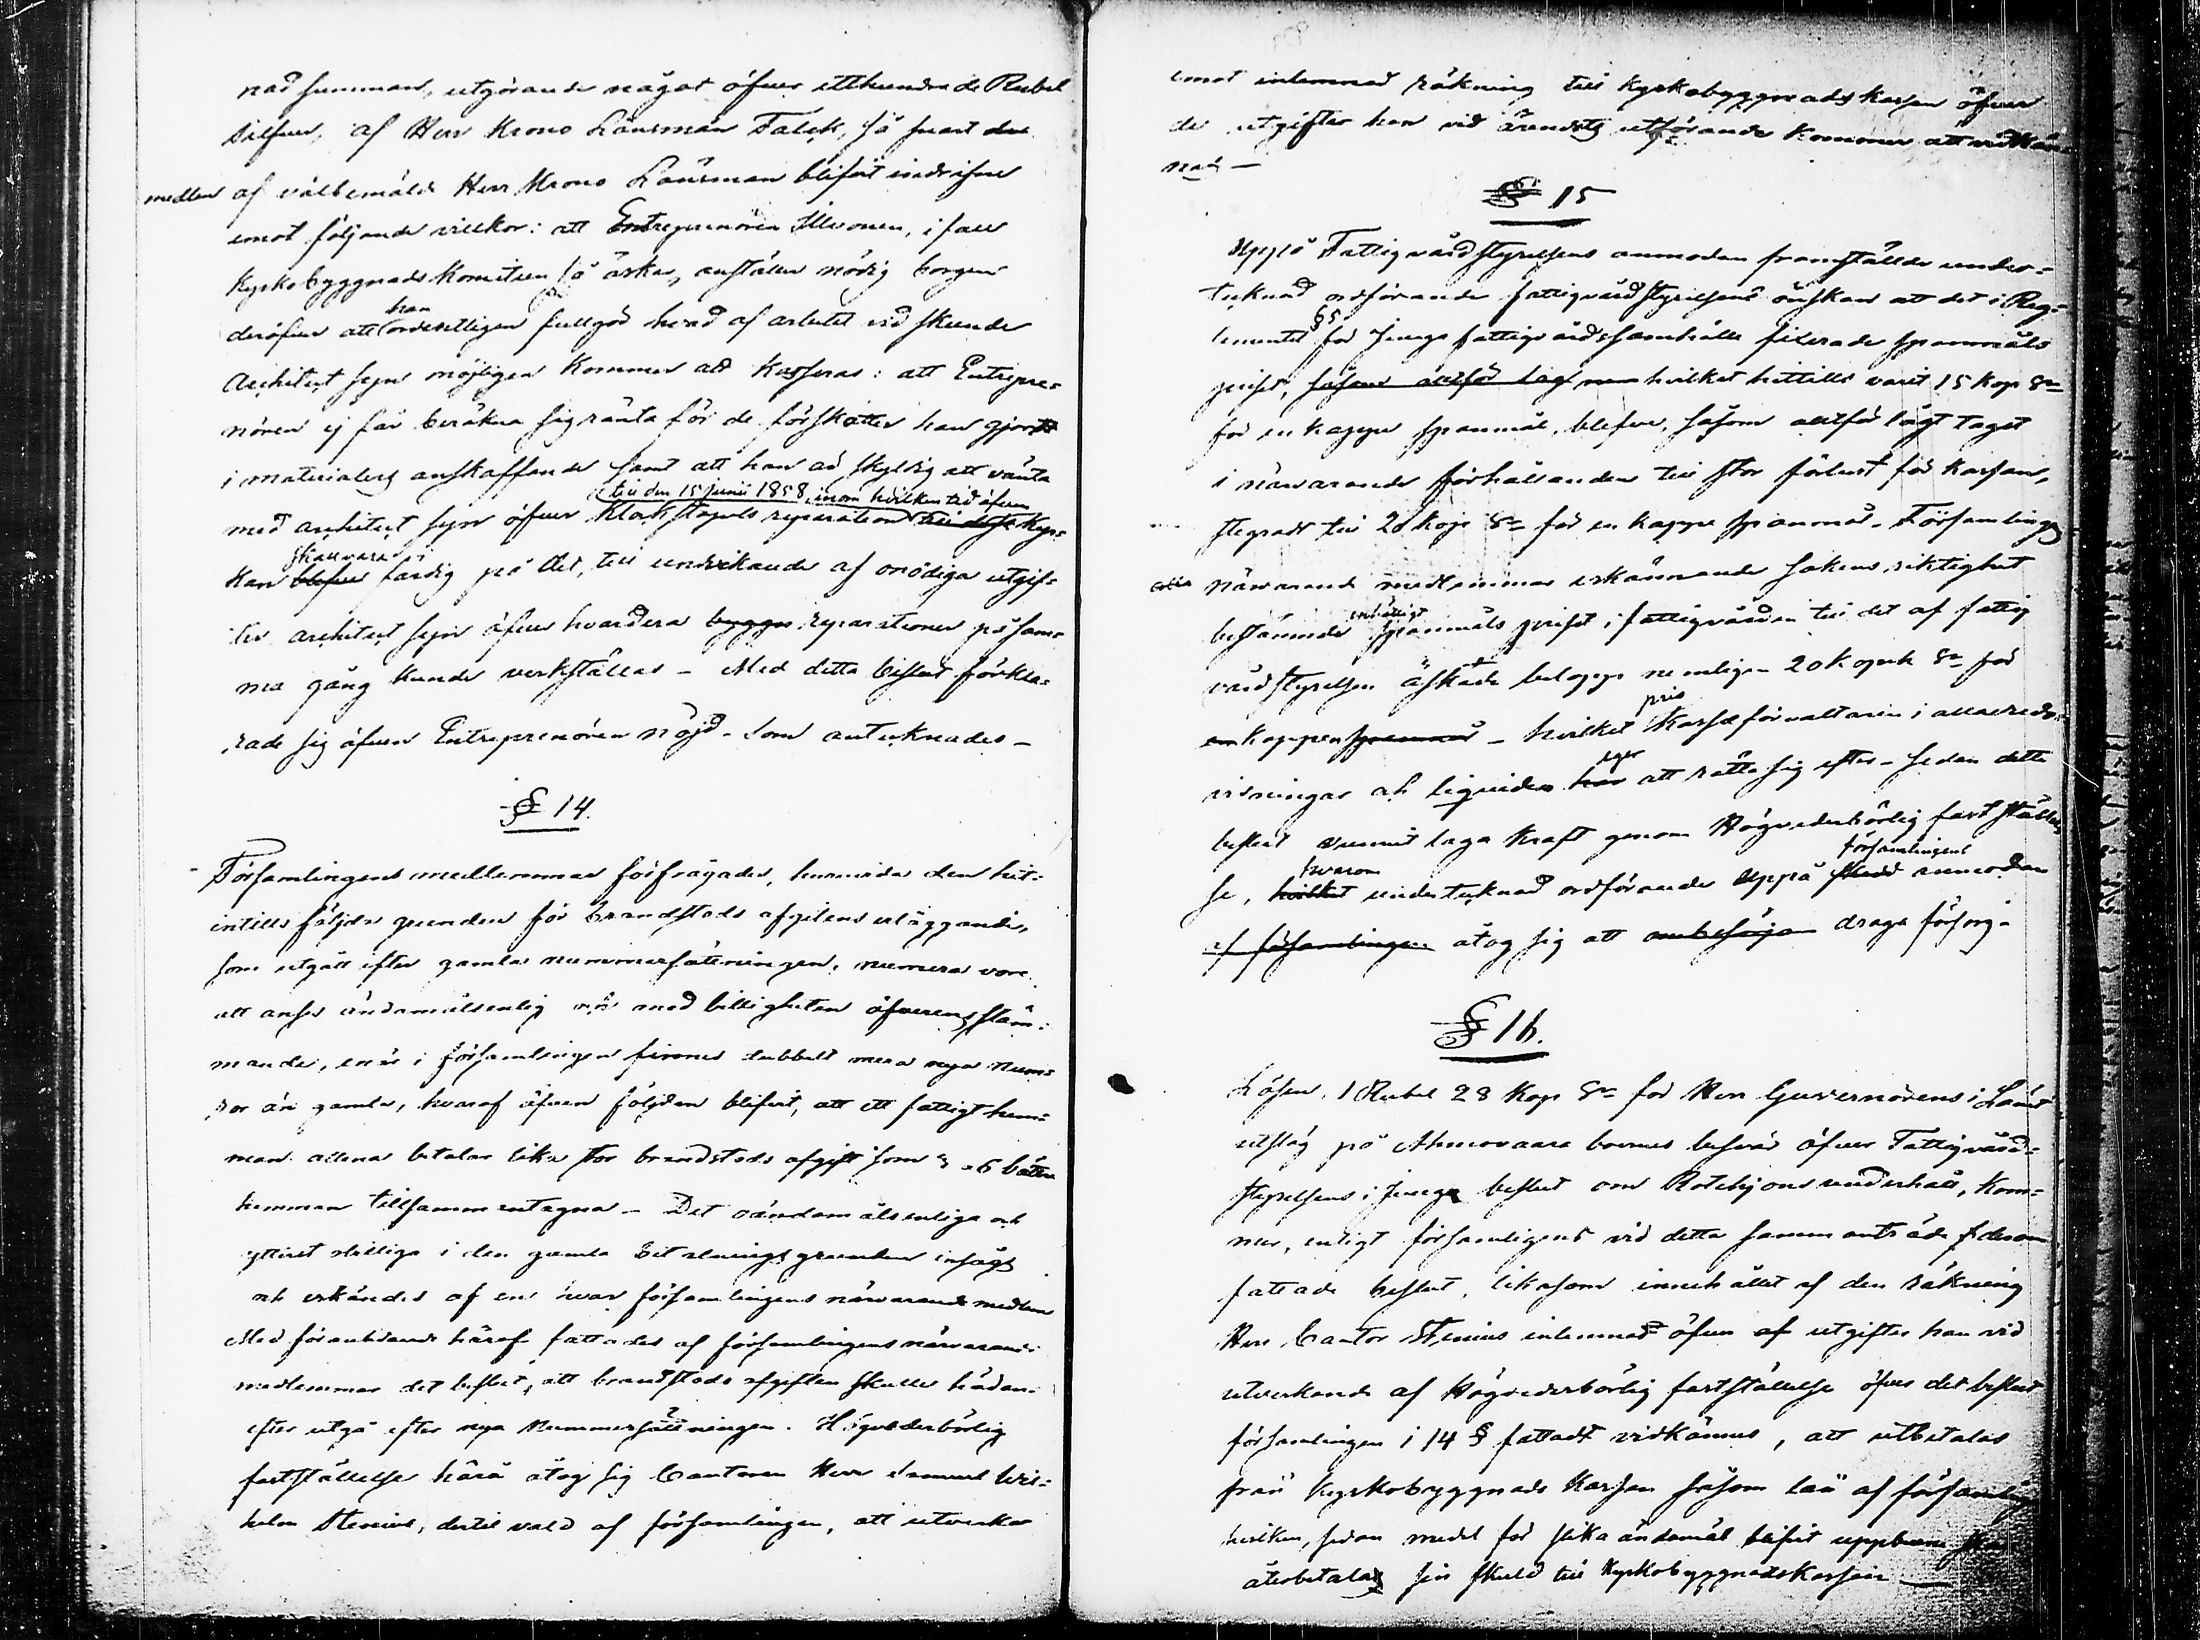 nad summan, utgörande något öfver etthundrade Rubel
silfver, af Herr Krono Länsman Falck, så snart
medlen af välbemälde Herr Krono Länsman blifvit indrifne
emot följande villkor: att Entreprenören Illvonen, i fall
Kyrkobyggnads Komiteen så äskar, anställer nödig borgen
han
deröfver att ordentligen fullgöd hvad af arbetet vid skeende
Architect syn möjligen kommer att kasseras: att Entrepre-
nören ej får beräkna sig ränta för de förskotter han gjort
i materialiers anskaffande samt att han är skyldig att vänta
till den 15 Junii 1858, inom hvilken tid äfven
med architect syn öfver Klockstapels reparation till dess Kyr-
skall vara
kan blefve färdig på det, till undvikande af onödiga utgif-
ter, architect syn öfver hvardera byggn reparationer på sam-
ma gång kunde verkställas – Med detta beslut förkla-
rade sig äfven Entreprenören nöjd – Som antecknades –
§ 14.
Församlingens medlemmar förfrågades, huruvida den hit-
intills följda grunden för brandstods afgiftens erläggande,
som utgått efter gamla nummersättningen, numera vore
att anses ändamålsenlig och med billigheten öfverensstäm-
mande, enär i församlingen finnes dubbelt mera nya num-
ror än gamla, hvaraf äfven följden blifvit, att ett fattigt hem-
man allena betalar lika stor brandstods afgift som 5 a 6 bättre
hemman tillsammantagna – Det oändamålsenliga och
ytterst obilliga i den gamla betalningsgrunden insågs
och erkändes af en hvar församlingens närvarande medlem
Med föranledande häraf fattades af församlingens närvarande
medlemmar det beslut, att brandstods afgiften skulle hädan-
efter utgå efter nya Nummersättningen. Högvederbörlig
fastställelse härå åtog sig Cantoren Herr Samuel Wil-
helm Stenius, dertill vald af församlingen, att utverka
emot inlemnad räkning till Kyrkobyggnads kassan öfver
de utgifter han vid ärendets utförande kommer att vidkän-
nas –
§ 15
Uppå Fattigvårdstyrelsens anmodan framställde under-
tecknad ordförande fattigvårdstyrelsens önskan att det i Reg-
§ 5
lementet för Juuga fattigvårdssamhälle fixerade spannmåls
priset, såsom alltför lågt hvilket hittills varit 15 kop Sr
för en kappe spanmål, blefve, såsom alltför lågt taget
i närvarande förhållanden till stor förlust för kassan,
stegradt till 20 kop Sr för en kappe spanmål – Församlings
närvarande medlemmar erkännande sakens riktighet
enhälligt
bestämde spanmåls priset i fattigvården till det af fattig
vårdstyrelsen äskade belopp nemligen 20 kopek Sr för
pris
en kappen spanmål – hvilket Kasseförvaltaren i alla redo-
eger
visningar och liquider har att rätta sig efter – sedan detta
beslut vunnit laga kraft genom Högvederbörlig fastställel-
hvarom församlingens
se, hvilket undertecknad ordförande uppå skedd anmodan
af församlingen åtog sig att ombesörja draga försorg –
§ 16.
Lösen, 1 Rubel 28 Kop Sr för Herr Guvernörens i Länet
utslag på Ahmovaara boernes besvär öfver Fattigvård-
styrelsens i Juuga beslut om Rotehjons underhåll, kom-
mer, enligt församlingens vid detta sammanträde
fattade beslut, likasom innehållet af den räkning
Herr Cantor Stenius inlemnad öfver af utgifter han vid
utverkande af Högvederbörlig fastställelse öfver det beslut
församlingen i 14 § fattadt vidkännes, att utbetalas
från Kyrkobyggnads kassan såsom lån af församling
hvilken, sedan medel för slika ändamål blifvit uppburne
återbetalas sin skuld till Kyrkobyggnadskassan –